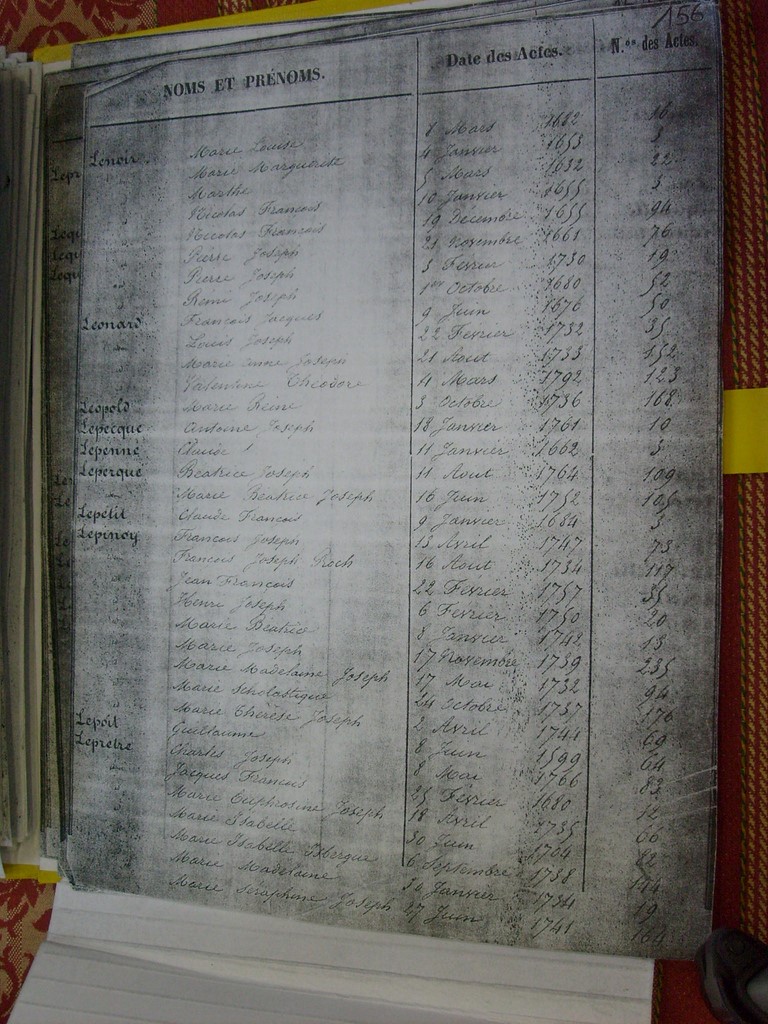 156
NOMS ET PRÉNOMS. Date des Actes. N.os des Actes.
Lenoir Marie Louise 1 Mars 1682 16
Marie Marguerite 4 Janvier 1653 3
Marthe 5 Mars 1632 22
Nicolas Francois 10 Janvier 1655 3
Nicolas Francois 19 Decembre 1655 94
Pierre Joseph 21 Novembre 1661 76
Pierre Joseph 3 Fevrier 1730 19
Remi Joseph 1er Octobre 1680 52
Leonard Francois Jacques 9 Juin 1676 50
Louis Joseph 22 Fevrier 1732 35
Marie anne Joseph 21 Aout 1733 152
Valentine Théodore 4 Mars 1792 123
Leopold Marie Reine 3 Octobre 1736 168
Lepecque Antoine Joseph 18 Janvier 1761 10
Lepenne Claude 11 Janvier 1662 3
Leperqué Beatrice Joseph 11 Aout 1764 109
Marie Beatrice Joseph 16 Juin 1752 105
Lepetit Claude Francois 9 Janvier 1684 3
Lepinoy Francois Joseph 13 Avril 1747 73
Francois Joseph Roch 16 Aout 1734 117
Jean Francois 22 Fevrier 1757 35
Henri Joseph 6 Fevrier 1750 20
Marie Beatrice 8 Janvier 1742 13
Marie Joseph 17 Novembre 1739 235
Marie Madelaine Joseph 17 Mai 1732 94
Marie Scholastique 24 Octobre 1737 176
Marie Thérèse Joseph 2 Avril 1744 69
Lepoit Guillaume 8 Juin 1599 64
Lepretre Charles Joseph 8 Mai 1766 83
Jacques Francois 25 Fevrier 1680 12
Marie Euphrosine Joseph 18 Avril 1735 66
Marie Isabelle 30 Juin 1704 82
Marie Isabelle Isbergue 6 Septembre 1738 144
Marie Madelaine 30 Janvier 1734 19
Marie Séraphine Joseph 27 Juin 1741 164